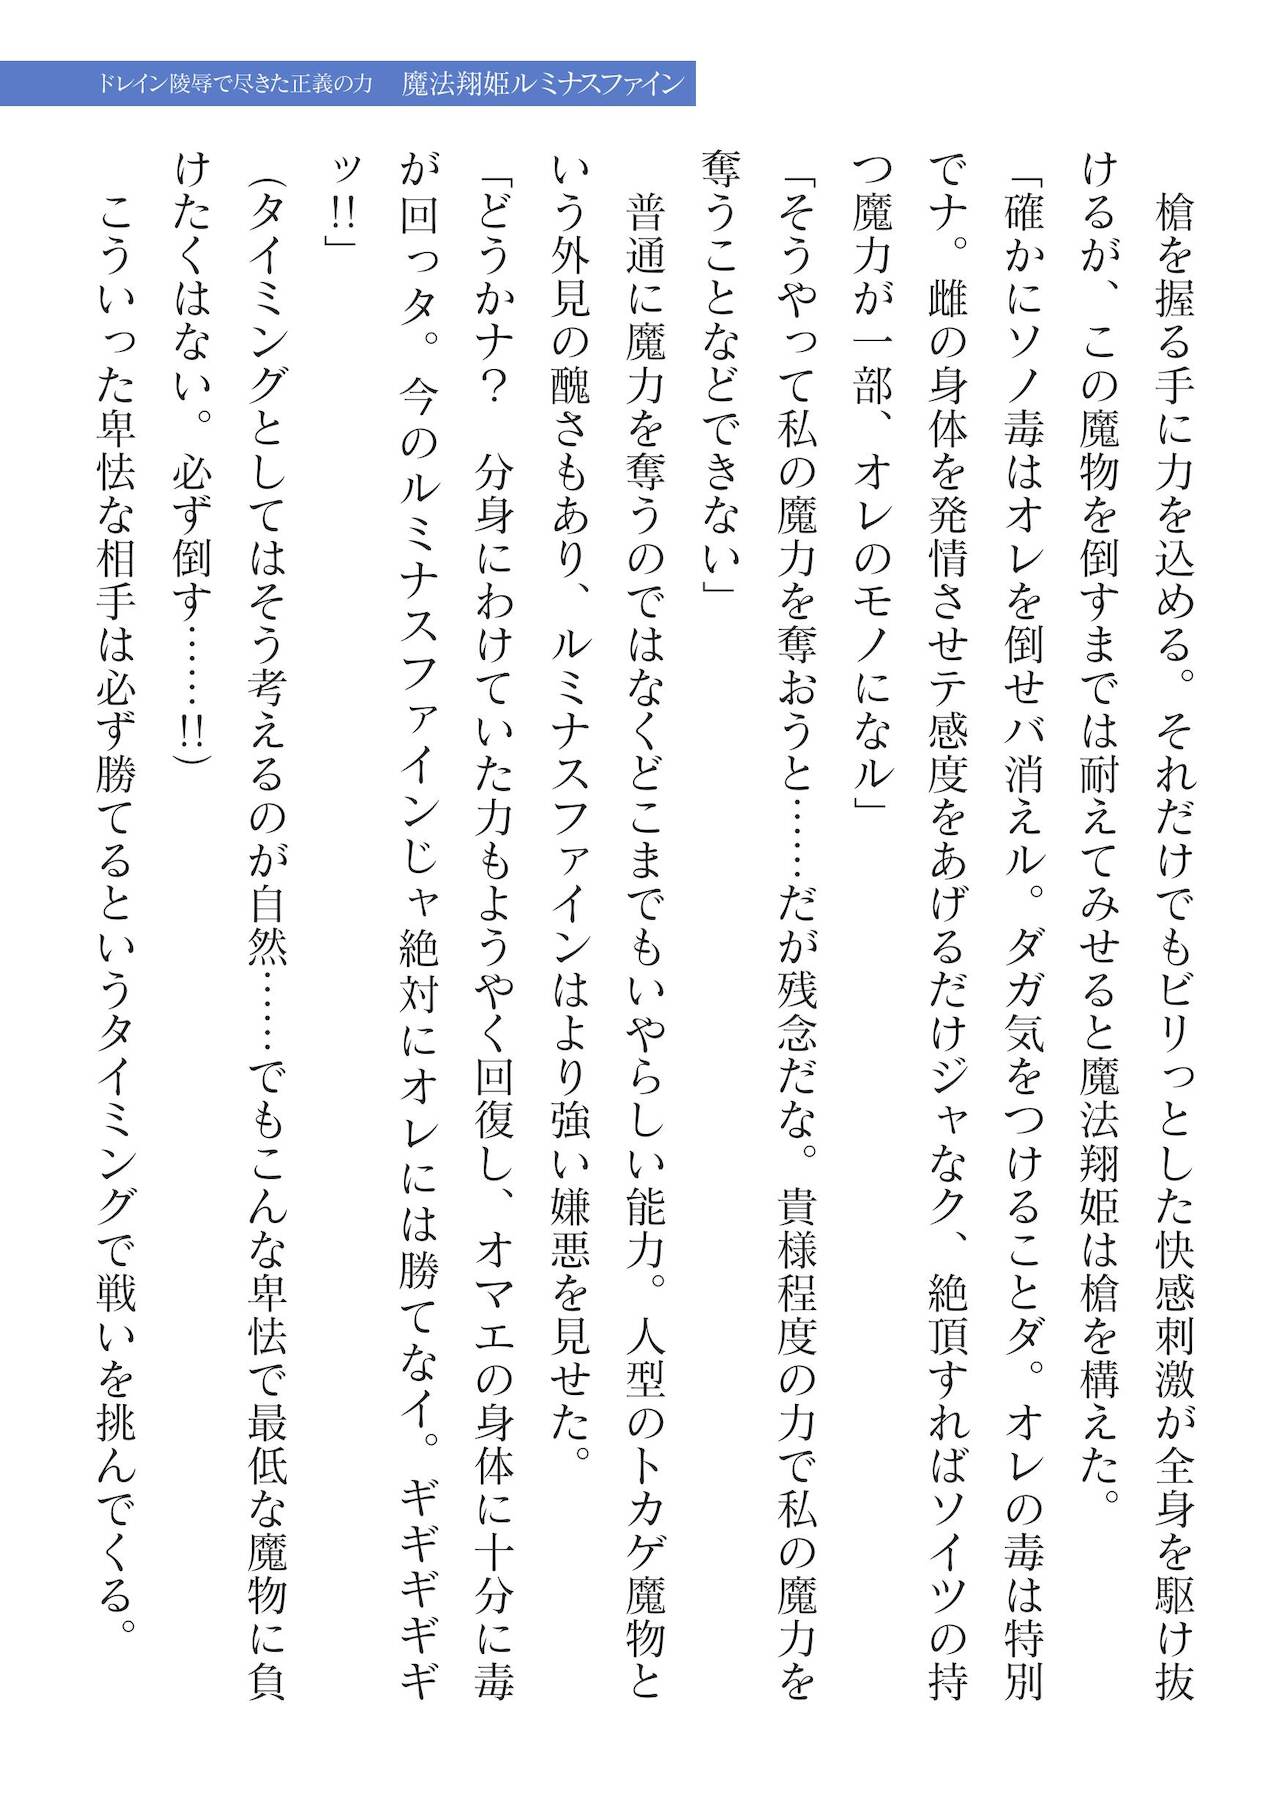 ドレイン陵辱で尽きた正義の力　魔法翔姫ルミナスファイン
　槍を握る手に力を込める。それだけでもビリっとした快感刺激が全身を駆け抜
けるが、この魔物を倒すまでは耐えてみせると魔法翔姫は槍を構えた。
「確かにソノ毒はオレを倒せバ消えル。ダガ気をつけることダ。オレの毒は特別
でナ。雌の身体を発情させテ感度をあげるだけジャなク、絶頂すればソイツの持
つ魔力が一部、オレのモノになル」
「そうやって私の魔力を奪おうと……だが残念だな。貴様程度の力で私の魔力を
奪うことなどできない」
　普通に魔力を奪うのではなくどこまでもいやらしい能力。人型のトカゲ魔物と
いう外見の醜さもあり、ルミナスファインはより強い嫌悪を見せた。
「どうかナ？　分身にわけていた力もようやく回復し、オマエの身体に十分に毒
が回っタ。今のルミナスファインじャ絶対にオレには勝てなイ。ギギギギギギ
ッ!!」
（タイミングとしてはそう考えるのが自然……でもこんな卑怯で最低な魔物に負
けたくはない。必ず倒す……!!）
　こういった卑怯な相手は必ず勝てるというタイミングで戦いを挑んでくる。